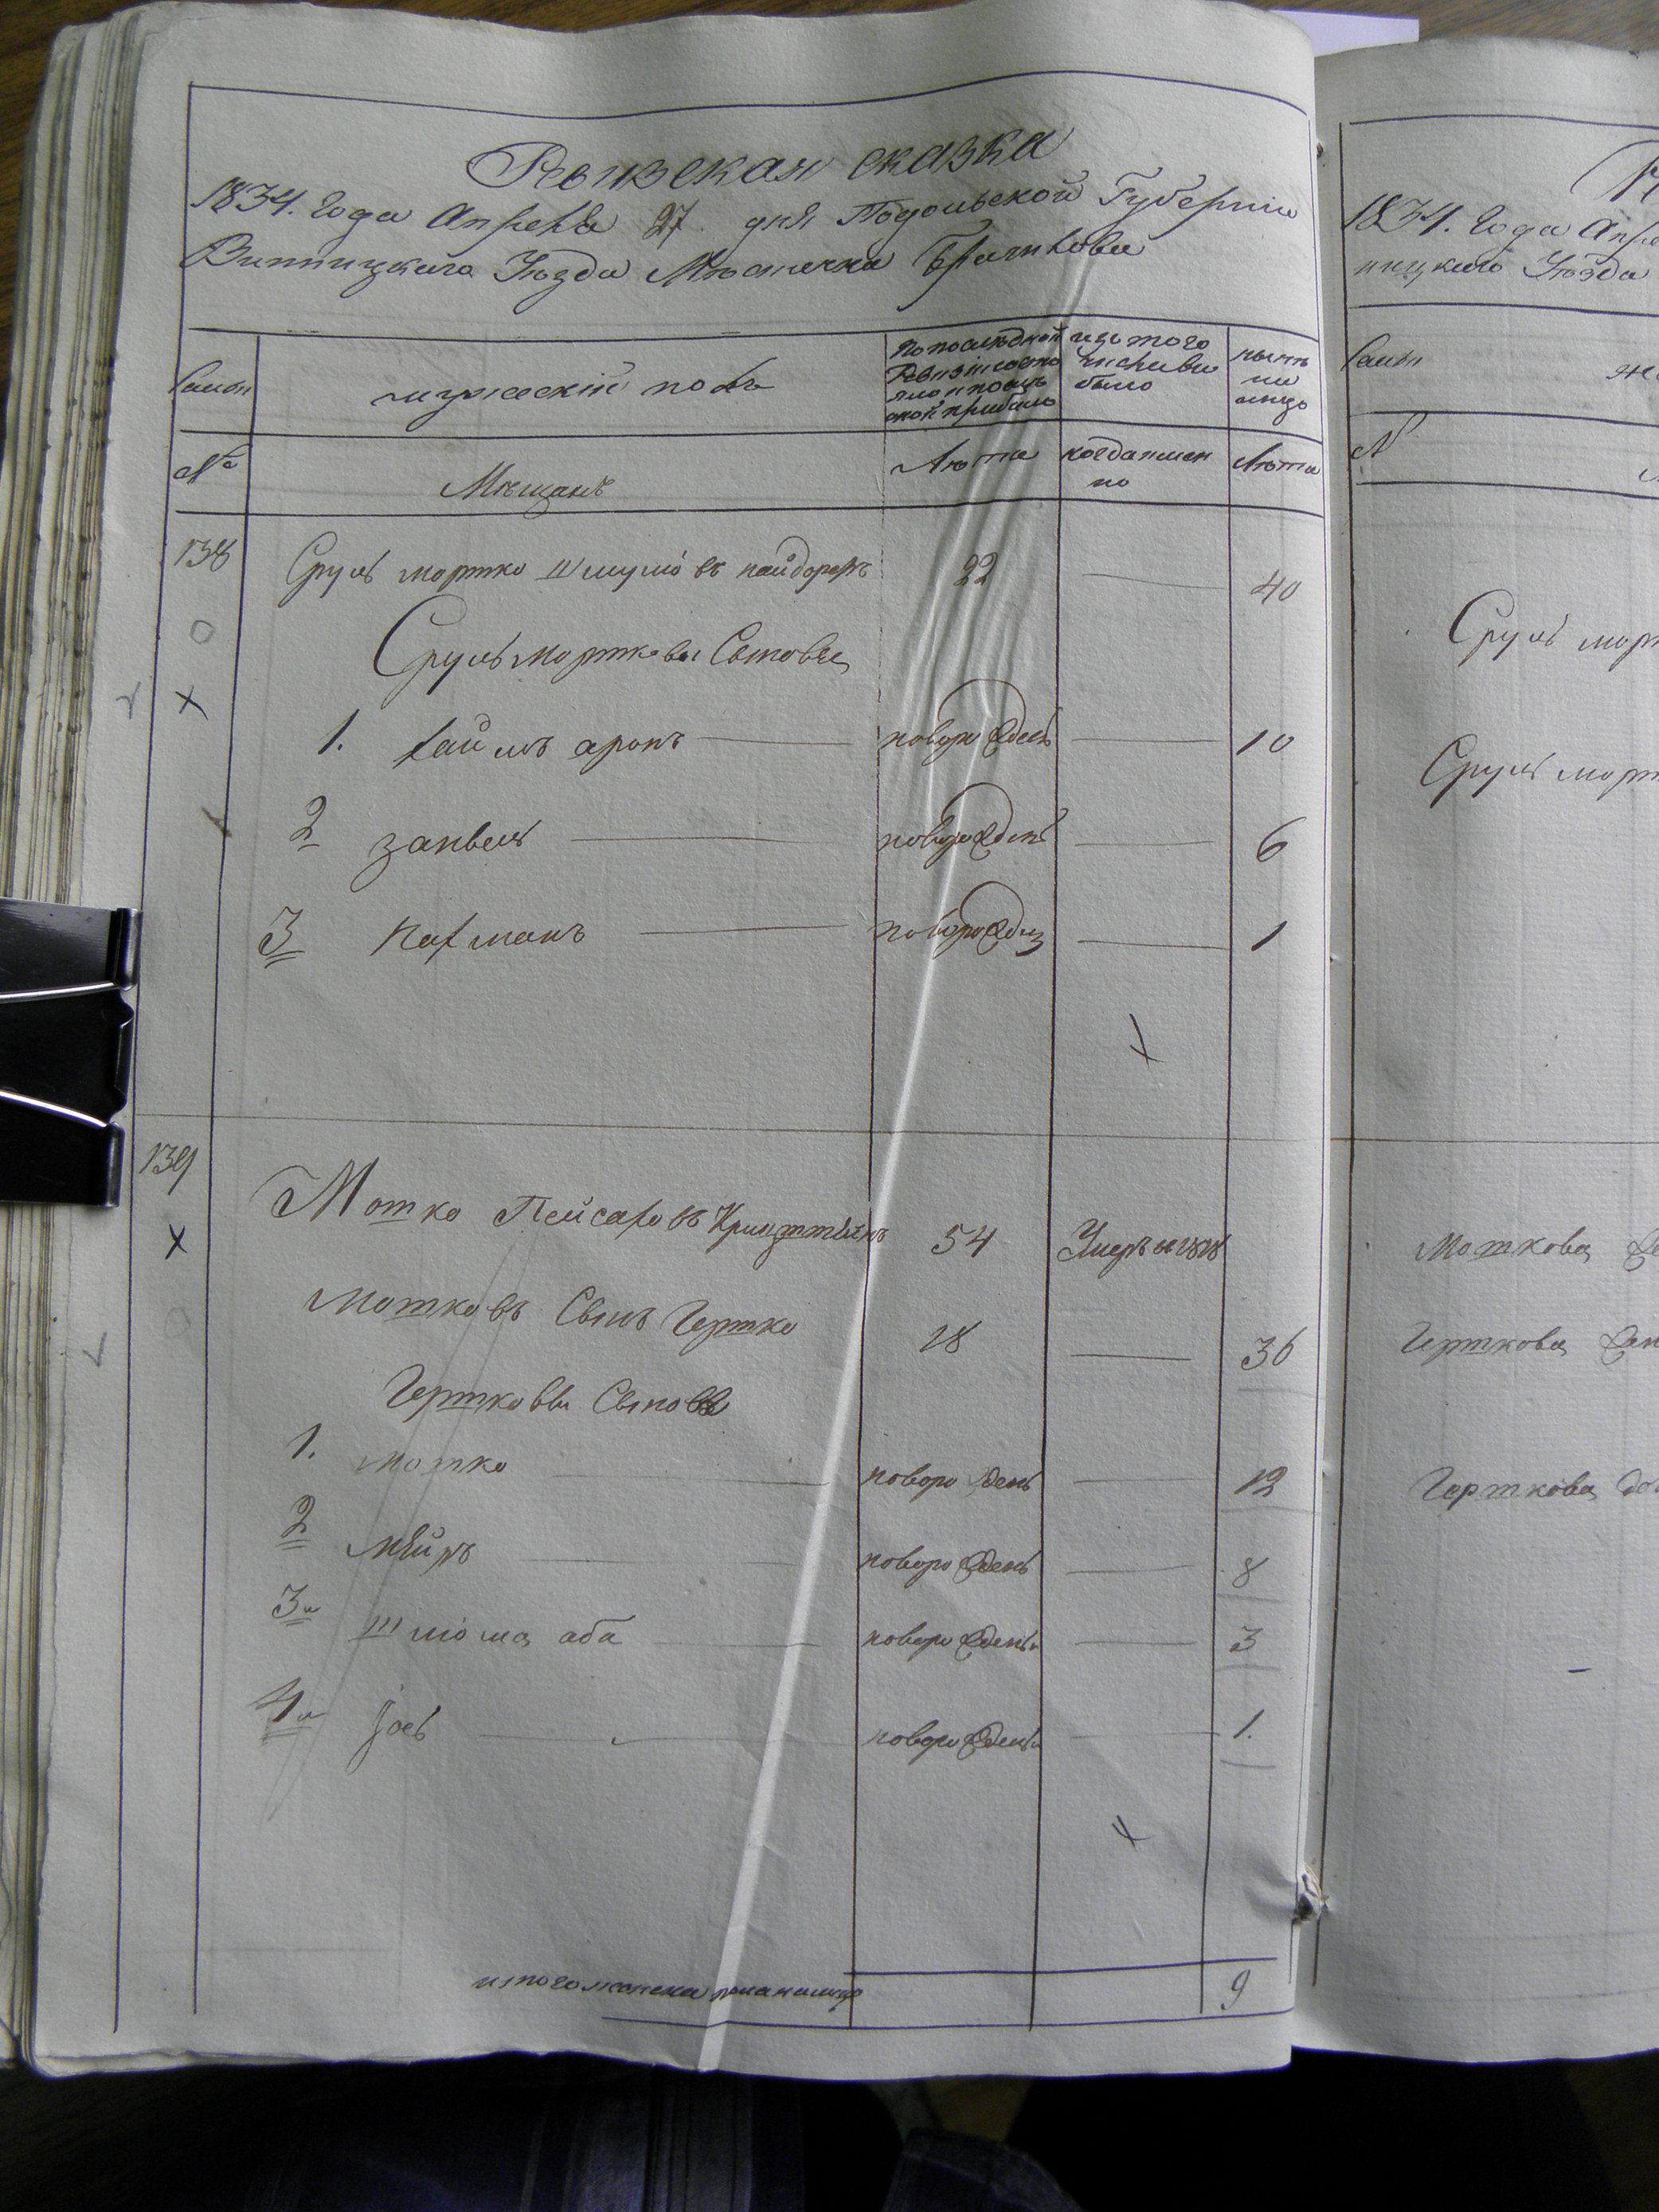 Ревизская сказка
1834. Года Апреля 27 дня Подольской Губерніи
Винницкаго Уѣзда Мѣстечка Браилова
Семьи
мужескій полъ
По последней ревизіи состояло и после оной прибыло
изъ того числа выбыло
нынѣ на лицо
№
Мѣщанъ
Лѣта
когда именно
Лѣта
138 Сруль мортко Шмулiовъ 22 — 40
Сруль мортковы Сыновья
1. хаимъ аронъ — новорожденъ — 10
2 занвель — новорожденъ — 6
3 нахманъ — новорожден — 1
139
Мотко Пейсаховъ 54 Умеръ
Мотковъ Сынъ Гершко 18 — 36
Гершковы Сыновья
1. мотко — новорожденъ — 12
2 мейръ — новорожденъ — 8
3й шлiома аба — новорожденъ — 3
4й Іось — новорожденъ — 1.
итого мужеска пола налицо 9
1834. Года Апре
ницкаго Уѣзда
Семьи
№
Сруль морт
Сруль морт
Моткова
Гершкова
Гершкова